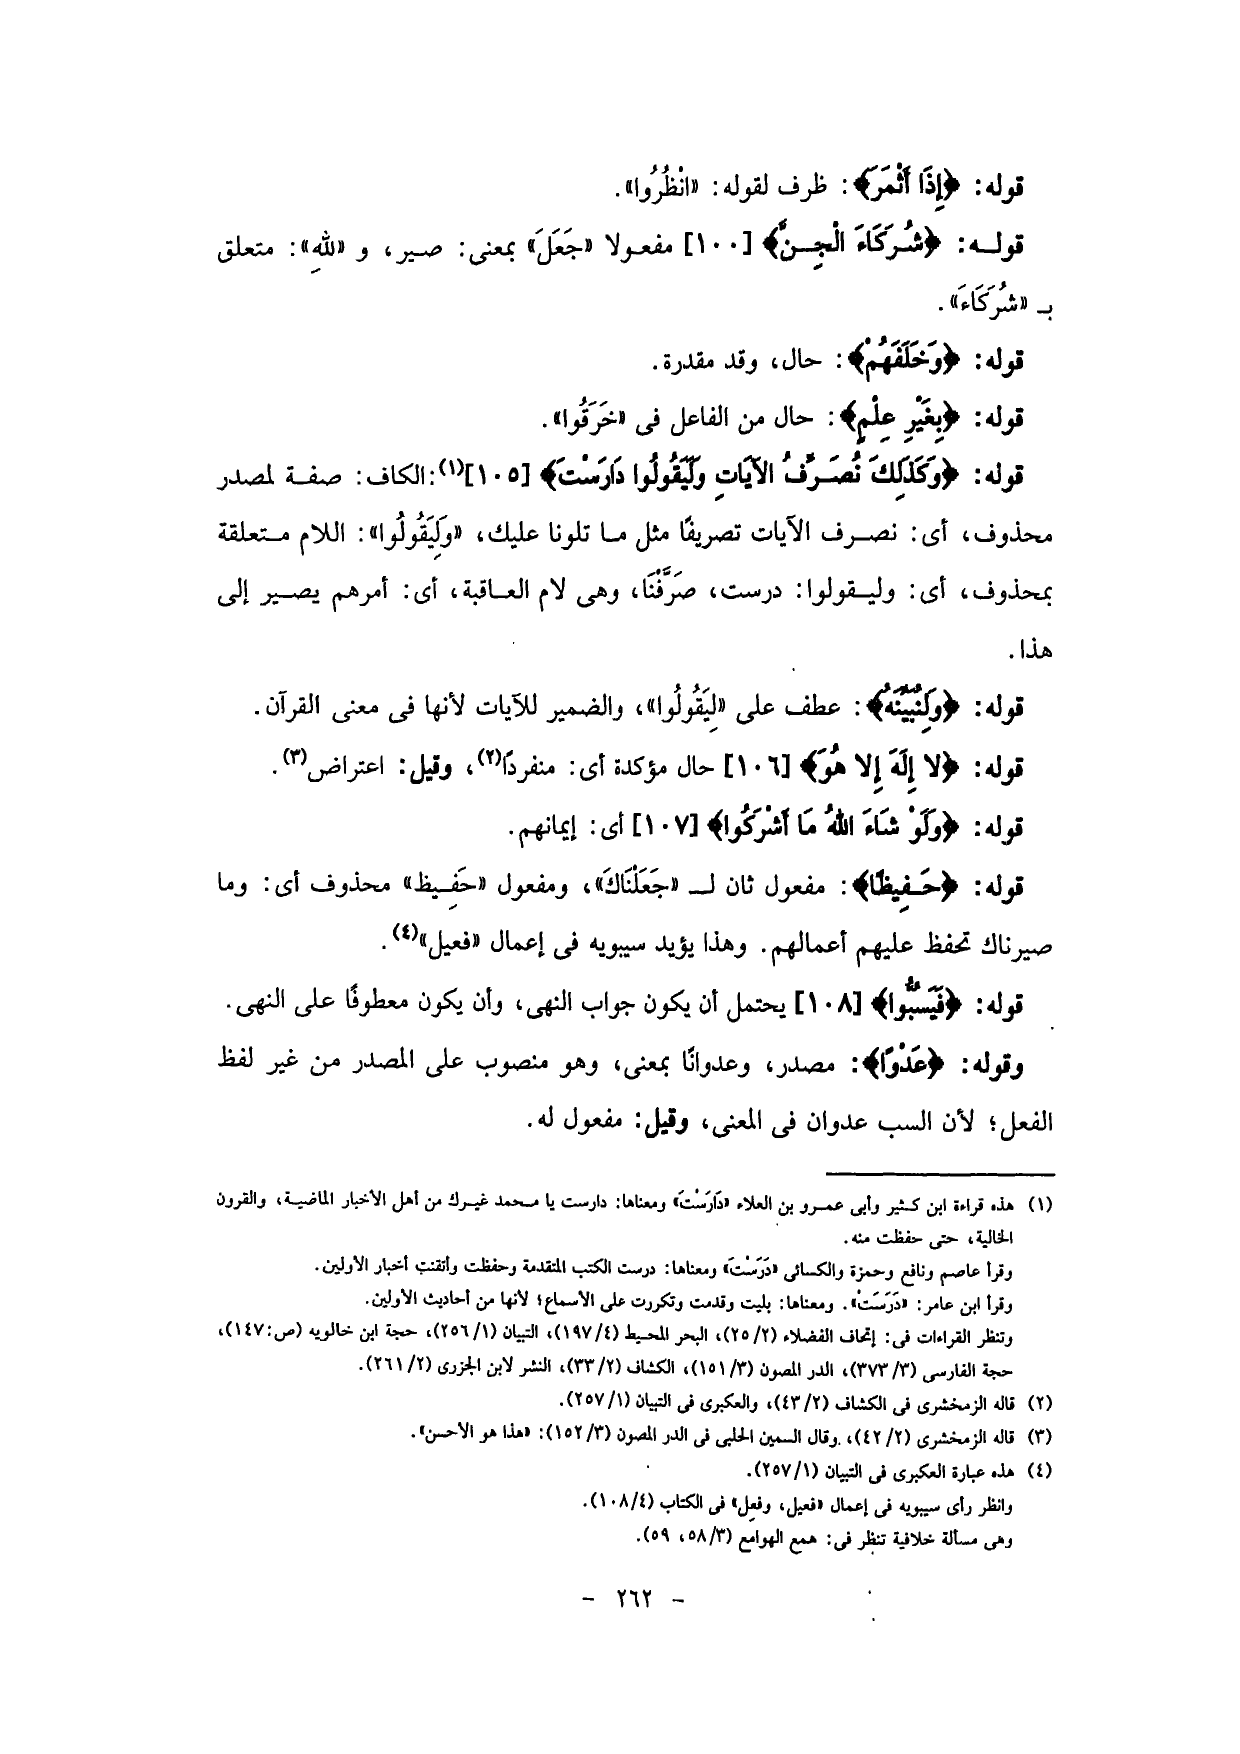 قوله: ﴿إِذَا أَثْمَرَ﴾: ظرف لقوله: «انْظُرُوا».
قولـه: ﴿شُرَكَاءَ الْجِـنَّ﴾ [١٠٠] مفعـولا «جَعَلَ» بمعنى: صـير، و «للهِ»: متعلق
بـ «شُرَكَاءَ».
قوله: ﴿وَخَلَقَهُمْ﴾: حال، وقد مقدرة.
قوله: ﴿بِغَيْرِ عِلْمٍ﴾: حال من الفاعل فى «خَرَقُوا».
قوله: ﴿وَكَذَلِكَ نُصَـرِّفُ الآيَاتِ وَلِيَقُولُوا دَارَسْتَ﴾ [١٠٥](١): الكاف: صفـة لمصدر
محذوف، أى: نصـرف الآيات تصريفًا مثل مـا تلونا عليك، «وَلِيَقُولُوا»: اللام متعلقة
بمحذوف، أى: وليـقولوا: درست، صَرَّفْنَا، وهى لام العـاقبة، أى: أمرهم يصـير إلى
هذا.
قوله: ﴿وَلِنُبَيِّنَهُ﴾: عطف على «لِيَقُولُوا»، والضمير للآيات لأنها فى معنى القرآن.
قوله: ﴿لا إِلَهَ إِلا هُوَ﴾ [١٠٦] حال مؤكدة أى: منفردًا(٢)، وقيل: اعتراض(٣).
قوله: ﴿وَلَوْ شَاءَ اللهُ مَا أَشْرَكُوا﴾ [١٠٧] أى: إيمانهم.
قوله: ﴿حَـفِيظًا﴾: مفعول ثان لــ «جَعَلْنَاكَ»، ومفعول «حَفِـيظ» محذوف أى: وما
صيرناك تحفظ عليهم أعمالهم. وهذا يؤيد سيبويه فى إعمال «فعيل»(٤).
قوله: ﴿فَيَسُبُّوا﴾ [١٠٨] يحتمل أن يكون جواب النهى، وأن يكون معطوفًا على النهى.
وقوله: ﴿عَدْوًا﴾: مصدر، وعدوانًا بمعنى، وهو منصوب على المصدر من غير لفظ
الفعل؛ لأن السب عدوان فى المعنى، وقيل: مفعول له.
(١) هذه قراءة ابن كـثير وأبى عمـرو بن العلاء «دَارَسْتَ» ومعناها: دارست يا محمد غيـرك من أهل الأخبار الماضيـة، والقرون
الخالية، حتى حفظت منه.
وقرأ عاصم ونافع وحمزة والكسائى «دَرَسْتَ» ومعناها: درست الكتب المتقدمة وحفظت وأتقنت أخبار الأولين.
وقرأ ابن عامر: «دَرَسَتْ». ومعناها: بليت وقدمت وتكررت على الأسماع؛ لأنها من أحاديث الأولين.
وتنظر القراءات فى: إتحاف الفضلاء (٢/ ٢٥)، البحر المحيط (٤/ ١٩٧)، التبيان (١/ ٢٥٦)، حجة ابن خالويه (ص: ١٤٧)،
حجة الفارسى (٣/ ٣٧٣)، الدر المصون (٣/ ١٥١)، الكشاف (٢/ ٣٣)، النشر لابن الجزرى (٢/ ٢٦١).
(٢) قاله الزمخشرى فى الكشاف (٢/ ٤٣)، والعكبرى فى التبيان (١/ ٢٥٧).
(٣) قاله الزمخشرى (٢/ ٤٢)، وقال السمين الحلبى فى الدر المصون (٣/ ١٥٢): «هذا هو الأحسن».
(٤) هذه عبارة العكبرى فى التبيان (١/ ٢٥٧).
وانظر رأى سيبويه فى إعمال «فعيل، وفعِل» فى الكتاب (٤/ ١٠٨).
وهى مسألة خلافية تنظر فى: همع الهوامع (٣/ ٥٨، ٥٩).
- ٢٦٢ -